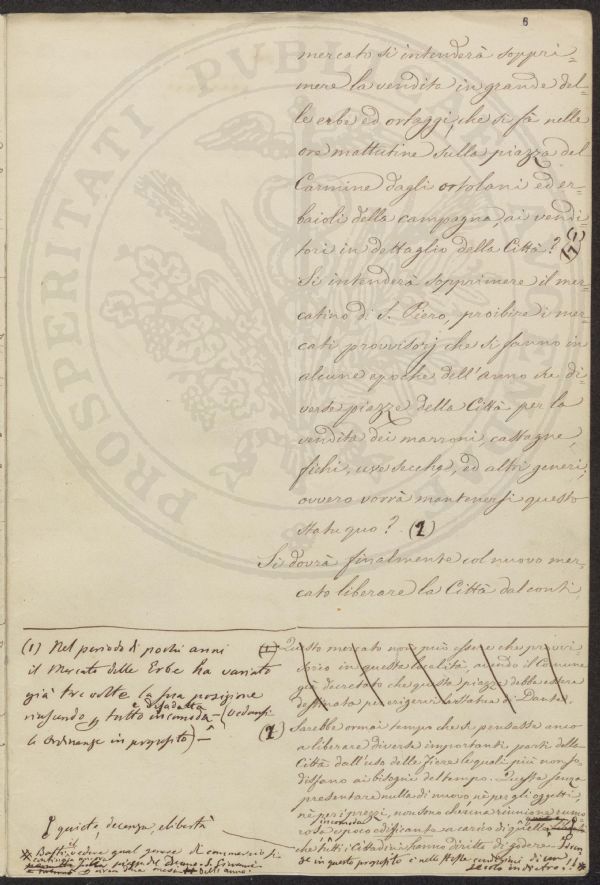 6
mercato si intenderà soppri=
mere la vendita in grande del=
le erbe ed ortaggi, che si fà nelle
ore mattutine sulla piazza del
Carmine dagli ortolani ed er=
baioli della campagna, ai vendi=
tori in dettaglio della Città? (1)
Si intenderà sopprimere il mer=
catino di S. Piero, proibire i mer=
cati provvisorj che si fanno in
alcune epoche dell'anno su di=
verse piazze della Città per la
vendita dei marroni, castagne,
fichi, uve secche, ed altri generi,
ovvero vorrà mantenersi questo
statu quo? (2)
Si dovrà finalmente col nuovo mer=
cato liberare la Città dal conti.
(1) Nel periodo di pochi anni
il Mercato delle Erbe ha variato
già tre volte la sua posizione
riuscendo p tutto incomoda e disadatta - (Vedansi
le Ordinanze in proposito) -
(1) Questo mercato non può essere che provvi=
sorio in questa località, avendo il Comune
già decretato che questa piazza debba essere
destinata per erigervi la statua di Dante.
(2) Sarebbe ormai tempo che si pensasse anco
a liberare diverse importanti parti della
Città dall'uso delle Fiere le quali più non so=
disfano ai bisogni del tempo. Queste senza
presentare nulla di nuovo, nè per gli oggetti,
nè pei prezzi, non sono che una riunione rumo
rosa incomoda e poco edificante a carico di quella
che tutti i Cittadini hanno diritto di godere.
in questo proposito e nelle stesse condizioni di un
secolo indietro!! *
quiete, decenza, e libertà
* Basti vedere qual genere di commercio si
piazza del Duomo S. Giovanni
una mesata dell'anno.
PROSPERITATI PUBLICAE AUGENDAE